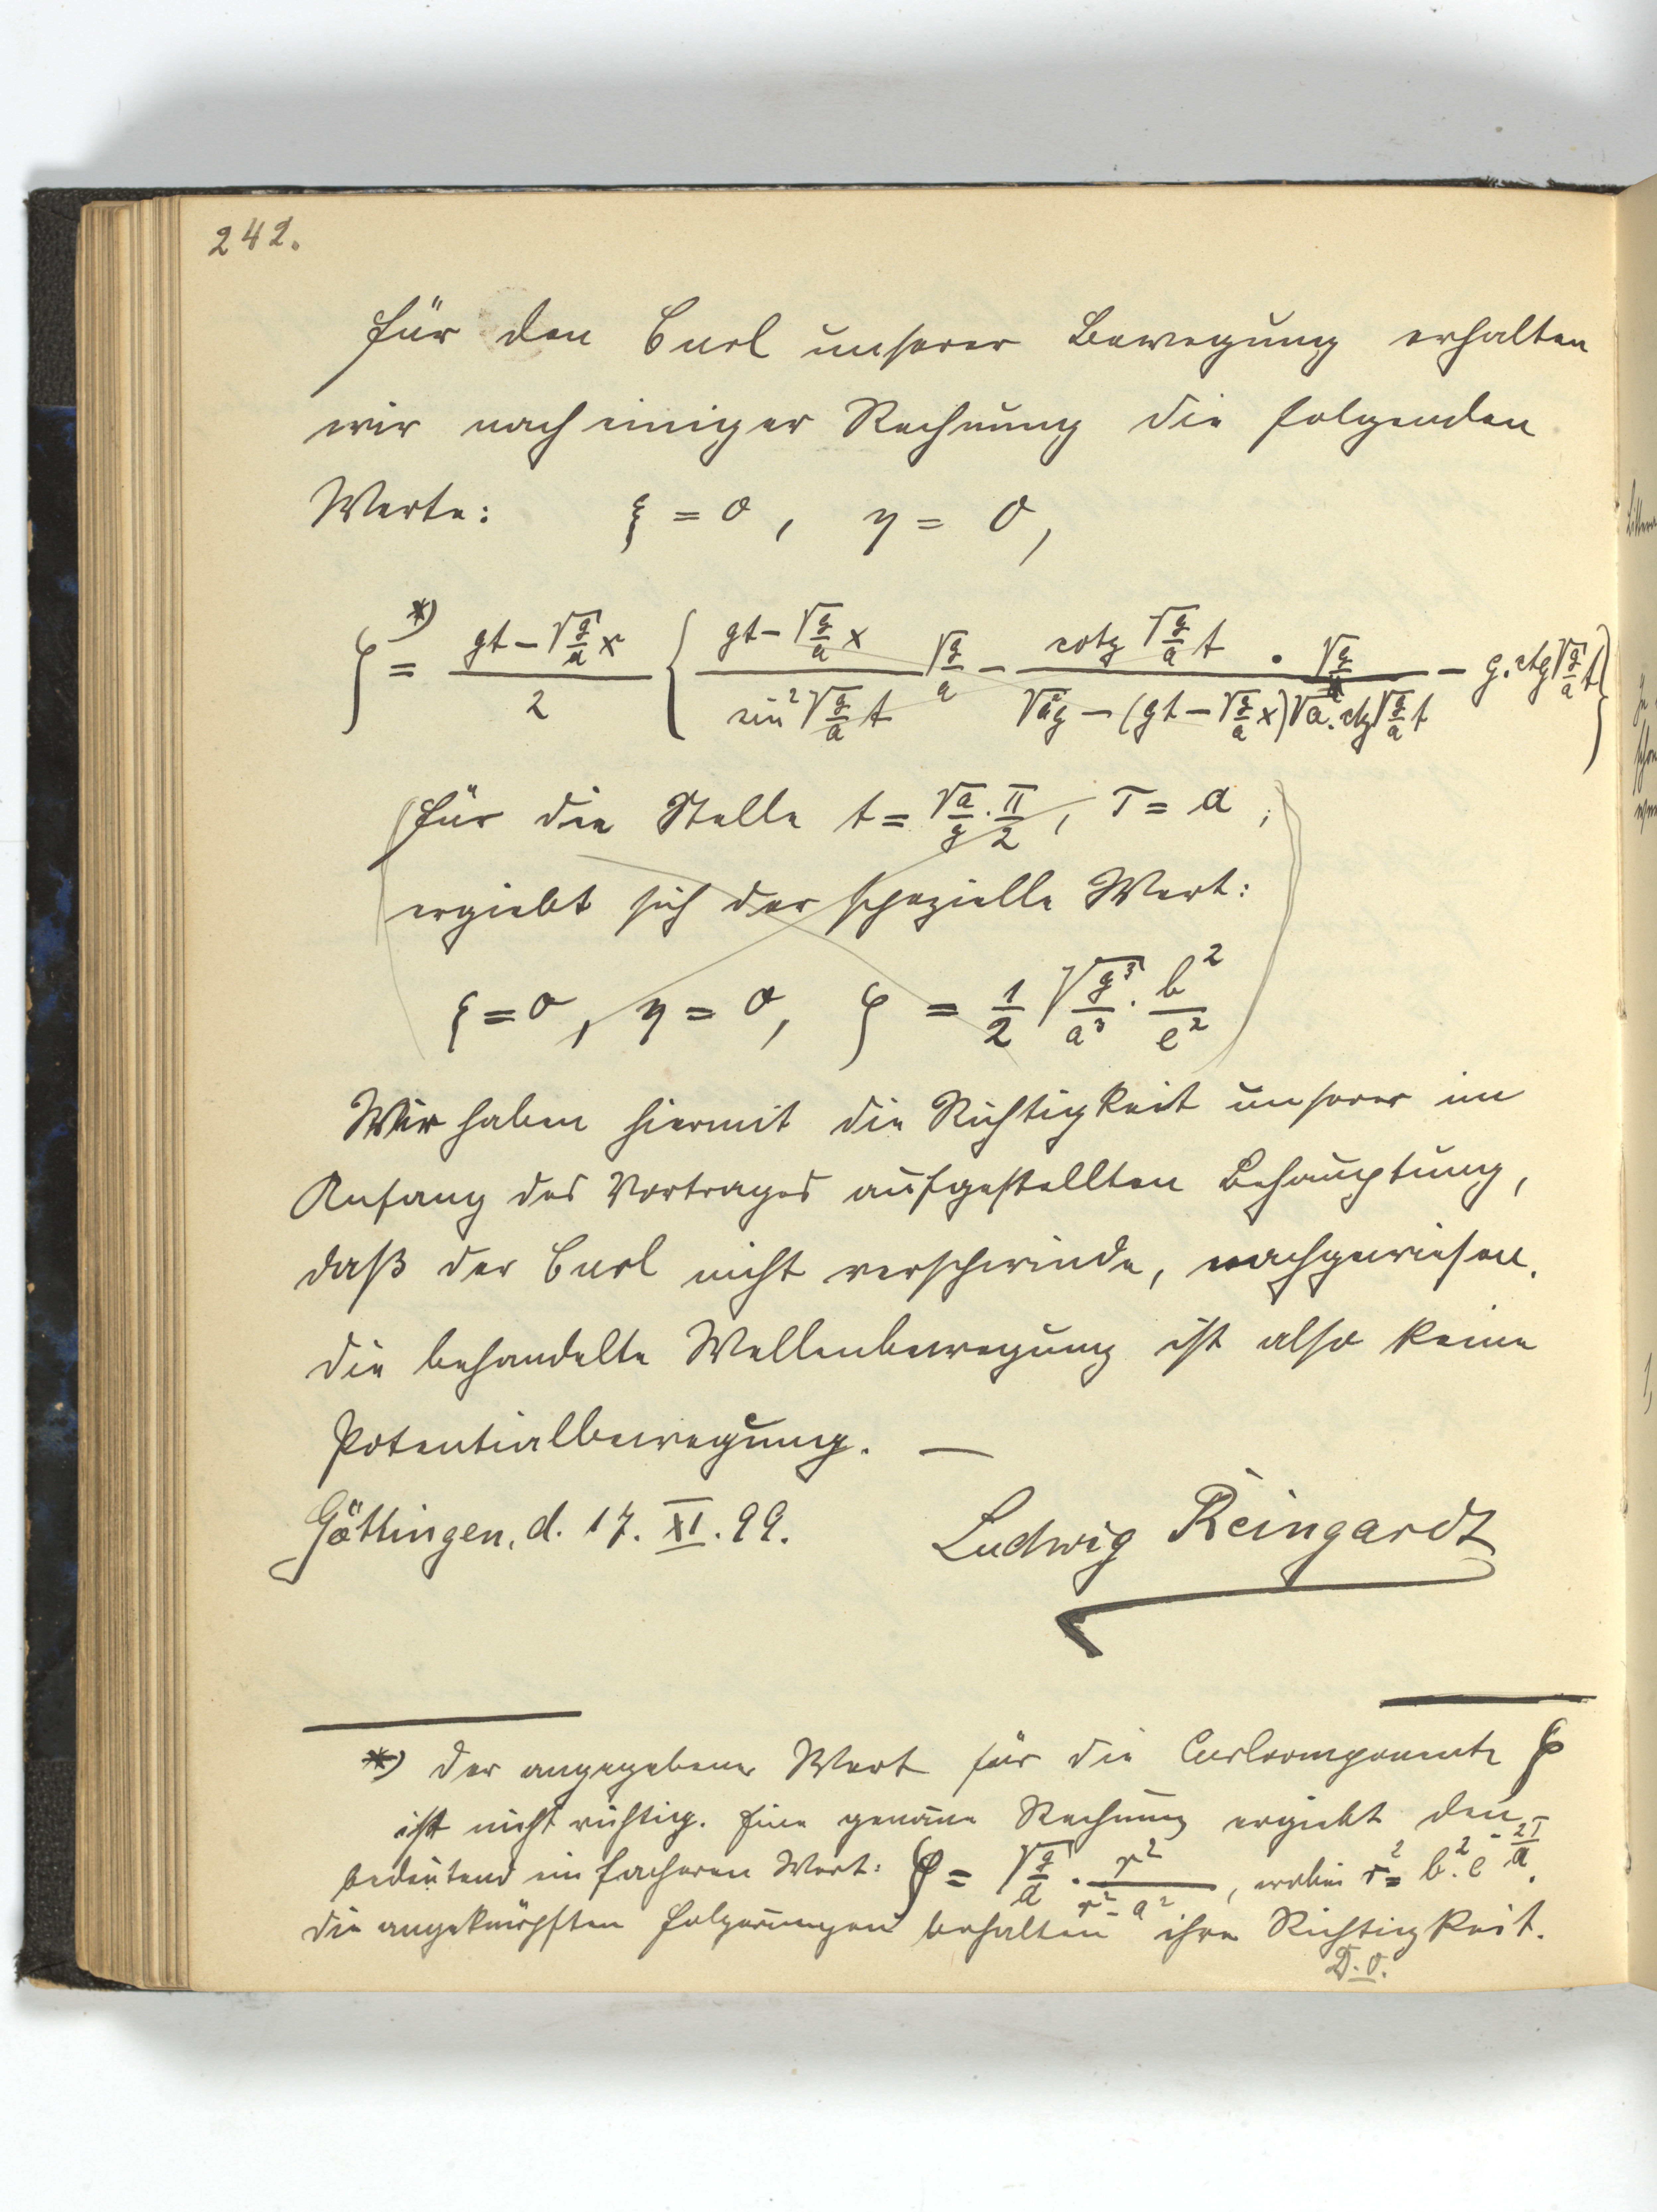 242.
Für den Curl unserer Bewegung erhalten
wir nach einiger Rechnung die folgenden
Werte: ξ = 0, η = 0,
ζ *) = (gt − √(g/a) x)/2 { (gt − √(g/a) x)/(sin² √(g/a) t) √(g/a) − (cotg √(g/a) t · √(g/a))/(√(a²g) − (gt − √(g/a) x) √a · ctg √(g/a) t) − g · ctg √(g/a) t }
(Für die Stelle t = √(a/g) · π/2, τ = a;
ergiebt sich der spezielle Wert:
ξ = 0, η = 0, ζ = 1/2 √(g³/a³) · b²/e²)
Wir haben hiermit die Richtigkeit unserer im
Anfang des Vortrages aufgestellten Behauptung,
daß der Curl nicht verschwinde, nachgewiesen.
Die behandelte Wellenbewegung ist also keine
Potentialbewegung. —
Göttingen, d. 17. XI. 99. Ludwig Reingardt
*) Der angegebene Wert für die Curlcomponente ζ
ist nicht richtig. Eine genaue Rechnung ergiebt den
bedeutend einfacheren Wert: ζ = √(g/a) · r²/(r² − a²), wobei r² = b² · e^(−2τ/a).
Die angeknüpften Folgerungen behalten ihre Richtigkeit.
D. O.